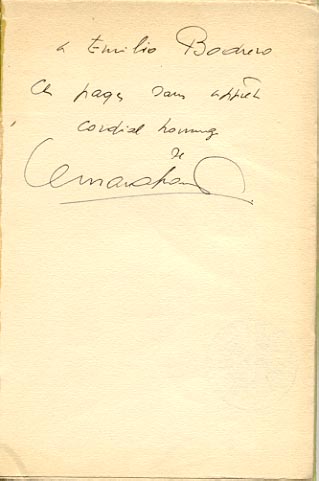 a Emilio Bodrero
ces pages sans apprêt
cordial hommage
de